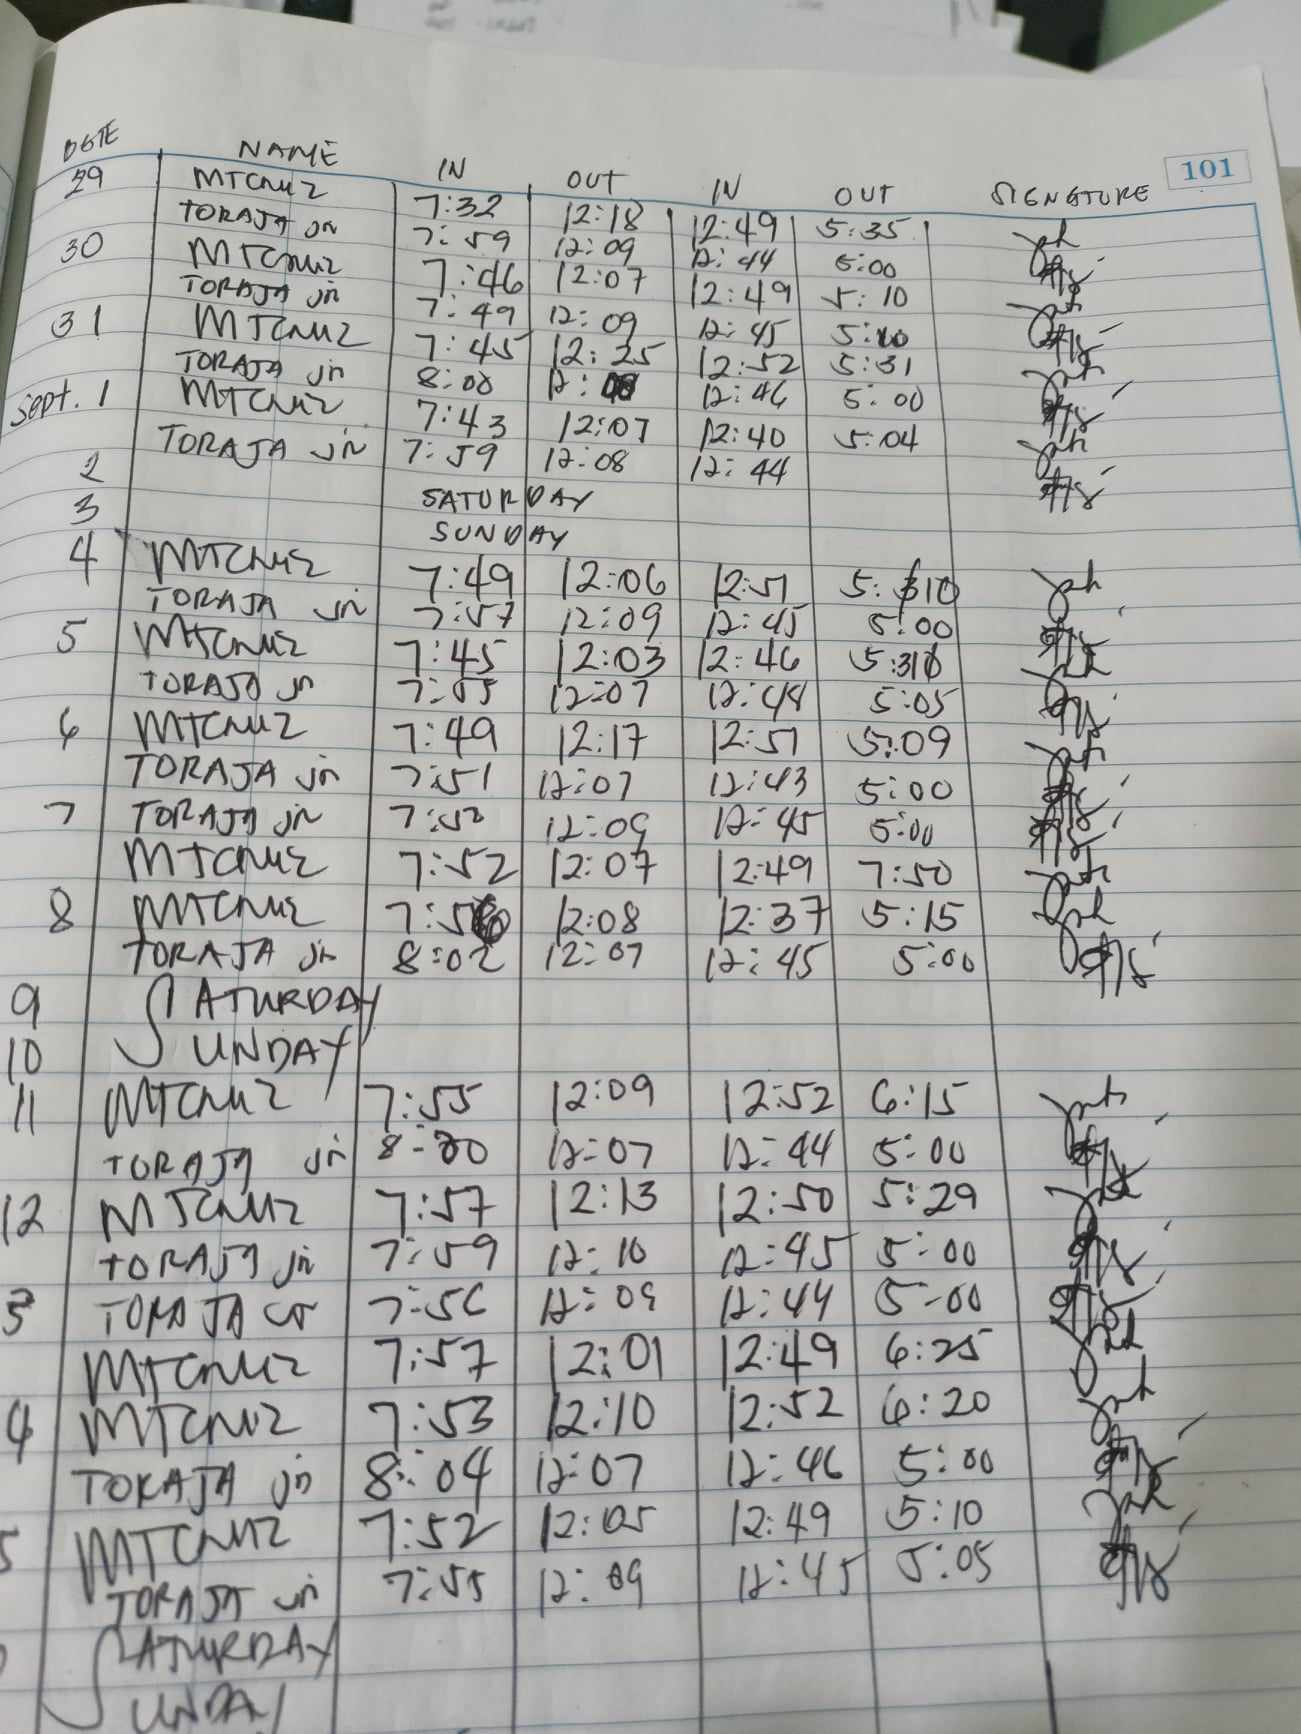 101
DATE NAME IN OUT IN OUT SIGNATURE
29 MTCruz 7:32 12:18 12:49 5:35
TORAJA Jr 7:59 12:09 12:44 5:00
30 MTCruz 7:46 12:07 12:49 5:10
TORAJA Jr 7:49 12:09 12:45 5:00
31 MTCruz 7:45 12:25 12:52 5:31
TORAJA Jr 8:00 12: 12:46 5:00
Sept. 1 MTCruz 7:43 12:07 12:40 5:04
TORAJA Jr 7:59 12:08 12:44
2 SATURDAY
3 SUNDAY
4 MTCruz 7:49 12:06 12:51 5:10
TORAJA Jr 7:57 12:09 12:45 5:00
5 MTCruz 7:45 12:03 12:46
TORAJA Jr 7:55 12:07 12:48 5:05
6 MTCruz 7:49 12:17 12:51 5:09
TORAJA Jr 7:51 12:07 12:43 5:00
7 TORAJA Jr 7:52 12:09 12:45 5:00
MTCruz 7:52 12:07 12:49 7:50
8 MTCruz 12:08 12:37 5:15
TORAJA Jr 8:02 12:07 12:45 5:00
9 SATURDAY
10 SUNDAY
11 MTCruz 7:55 12:09 12:52 6:15
TORAJA Jr 8:00 12:07 12:44 5:00
12 MTCruz 7:57 12:13 12:50 5:29
TORAJA Jr 7:59 12:10 12:45 5:00
3 TORAJA Jr 7:56 12:09 12:44 5:00
MTCruz 7:57 12:01 12:49 6:25
4 MTCruz 7:53 12:10 12:52 6:20
TORAJA Jr 8:04 12:07 12:46 5:00
5 MTCruz 7:52 12:05 12:49 5:10
TORAJA Jr 7:55 12:09 12:45 5:05
SATURDAY
SUNDAY